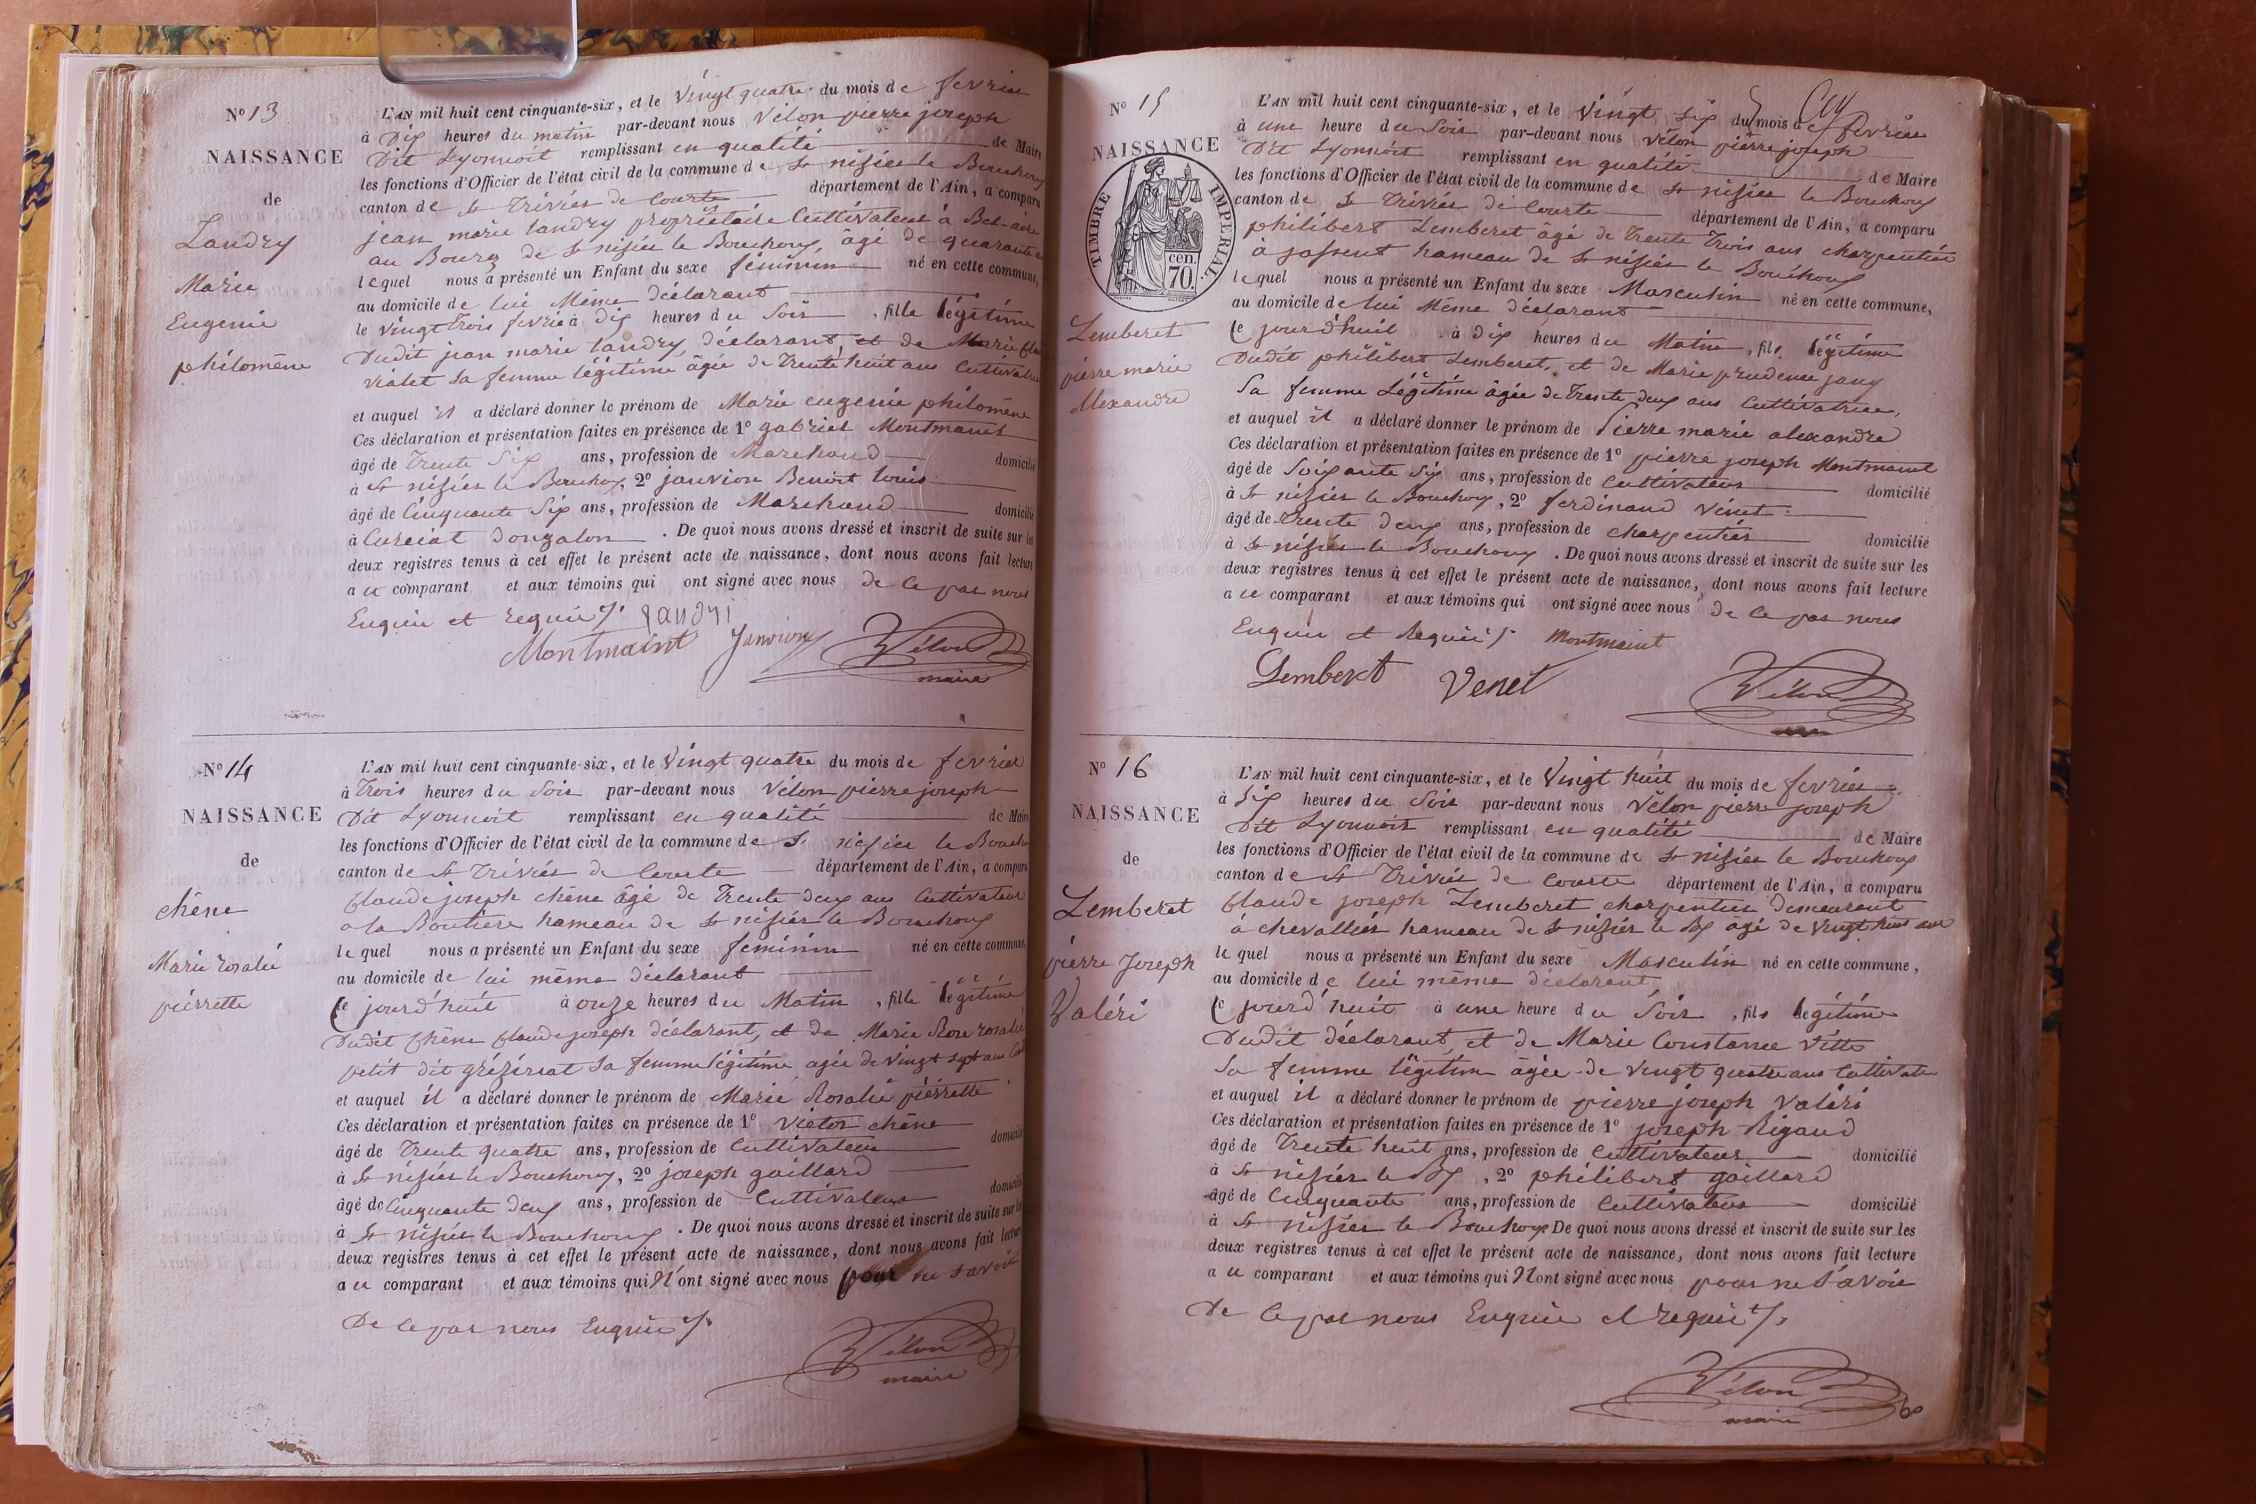 No 13
NAISSANCE
de
Landry
Marie
Eugenie
philomène
L'AN mil huit cent cinquante-six, et le vingt quatre du mois de fevrier
à Dix heures du matin par-devant nous Vélon pierre joseph
Dit Lyonnoit remplissant en qualité de Maire
les fonctions d'Officier de l'état civil de la commune de St nizier le Bouchoux
canton de St Trivier de Courte département de l'Ain, a comparu
jean marie landry propriétaire Cultivateur à Bel-air
au Bourg de St nizier le Bouchoux, âgé de quarante
lequel nous a présenté un Enfant du sexe féminin né en cette commune,
au domicile de lui Même déclarant
le vingt trois fevrier à Dix heures du Soir, fille légitime
Dudit jean marie landry, déclarant, et de Marie
vialet Sa femme légitime âgée de Trente huit ans Cultivatrice
et auquel il a déclaré donner le prénom de Marie eugenie philomène
Ces déclaration et présentation faites en présence de 1o gabriel Montmaint
âgé de Trente Six ans, profession de Marchand domicilié
à St nizier le Bouchoux, 2o janvion Benoit louis
âgé de Cinquante Six ans, profession de Marchand domicilié
à Curciat Dongalon. De quoi nous avons dressé et inscrit de suite sur les
deux registres tenus à cet effet le présent acte de naissance, dont nous avons fait lecture
au comparant et aux témoins qui ont signé avec nous de ce par nous
Enquis et requis /. landri
Montmaint Janvion Vélon
maire
No 14
NAISSANCE
de
chêne
Marie rosalie
pierrette
L'AN mil huit cent cinquante-six, et le Vingt quatre du mois de fevrier
à Trois heures du Soir par-devant nous Vélon pierre joseph
Dit Lyonnoit remplissant en qualité de Maire
les fonctions d'Officier de l'état civil de la commune de St nizier le Bouchoux
canton de St Trivier de Courte département de l'Ain, a comparu
Claude joseph chêne âgé de Trente deux ans Cultivateur
a la Boutiere hameau de St nizier le Bouchoux
lequel nous a présenté un Enfant du sexe feminin né en cette commune,
au domicile de lui même déclarant
Ce jourd'huit à onze heures du Matin, fille légitime
Dudit Chêne Claude joseph déclarant, et de Marie Rose rosalie
petit dit grézériat Sa femme légitime agée de Vingt sept ans
et auquel il a déclaré donner le prénom de Marie Rosalie pierrette
Ces déclaration et présentation faites en présence de 1o Victor chêne
âgé de Trente quatre ans, profession de Cultivateur domicilié
à St nizier le Bouchoux, 2o joseph gaillard
âgé de Cinquante deux ans, profession de Cultivateur domicilié
à St nizier le Bouchoux. De quoi nous avons dressé et inscrit de suite sur les
deux registres tenus à cet effet le présent acte de naissance, dont nous avons fait lecture
au comparant et aux témoins qui N'ont signé avec nous pour ne Savoir
De ce par nous Enquis /.
Vélon
maire
No 15
NAISSANCE
TIMBRE IMPERIAL
cen.
70.
Lemberet
pierre marie
Alexandre
L'AN mil huit cent cinquante-six, et le vingt six du mois de fevrier
à une heure du Soir par-devant nous Vélon pierre joseph
Dit Lyonnoit remplissant en qualité de Maire
les fonctions d'Officier de l'état civil de la commune de St nizier le Bouchoux
canton de St Trivier de Courte département de l'Ain, a comparu
philibert Lemberet âgé de Trente Trois ans charpentier
à hameau de St nizier le Bouchoux
lequel nous a présenté un Enfant du sexe Masculin né en cette commune,
au domicile de lui Même déclarant
Ce jourd'huit à Dix heures du Matin, fils légitime
Dudit philibert Lemberet, et de Marie prudence
Sa femme Légitime âgée de Trente deux ans Cultivatrice,
et auquel il a déclaré donner le prénom de Pierre marie alexandre
Ces déclaration et présentation faites en présence de 1o pierre joseph Montmaint
âgé de Soixante Six ans, profession de Cultivateur domicilié
à St nizier le Bouchoux, 2o ferdinand Venet
âgé de Trente deux ans, profession de charpentier domicilié
à St nizier le Bouchoux. De quoi nous avons dressé et inscrit de suite sur les
deux registres tenus à cet effet le présent acte de naissance, dont nous avons fait lecture
au comparant et aux témoins qui ont signé avec nous de ce par nous
Enquis et Requis /. Montmaint
Lemberet Venet Vélon
No 16
NAISSANCE
de
Lemberet
pierre Joseph
Valéri
L'AN mil huit cent cinquante-six, et le Vingt huit du mois de fevrier
à Six heures du Soir par-devant nous Vélon pierre joseph
Dit Lyonnoit remplissant en qualité de Maire
les fonctions d'Officier de l'état civil de la commune de St nizier le Bouchoux
canton de St Trivier de Courte département de l'Ain, a comparu
Claude joseph Lemberet charpentier demeurant
à chevallier hameau de St nizier le Bx âgé de Vingt huit ans
lequel nous a présenté un Enfant du sexe Masculin né en cette commune,
au domicile de lui même déclarant,
Ce jourd'huit à une heure du Soir, fils légitime
Dudit déclarant, et de Marie Constance
Sa femme légitime âgée de Vingt quatre ans
et auquel il a déclaré donner le prénom de pierre joseph Valéri
Ces déclaration et présentation faites en présence de 1o joseph Rigaud
âgé de Trente huit ans, profession de Cultivateur domicilié
à St nizier le Bx, 2o philibert gaillard
âgé de Cinquante ans, profession de Cultivateur domicilié
à St nizier le Bouchoux De quoi nous avons dressé et inscrit de suite sur les
deux registres tenus à cet effet le présent acte de naissance, dont nous avons fait lecture
au comparant et aux témoins qui N'ont signé avec nous pour ne Savoir
De ce par nous Enquis et requis /.
Vélon
maire